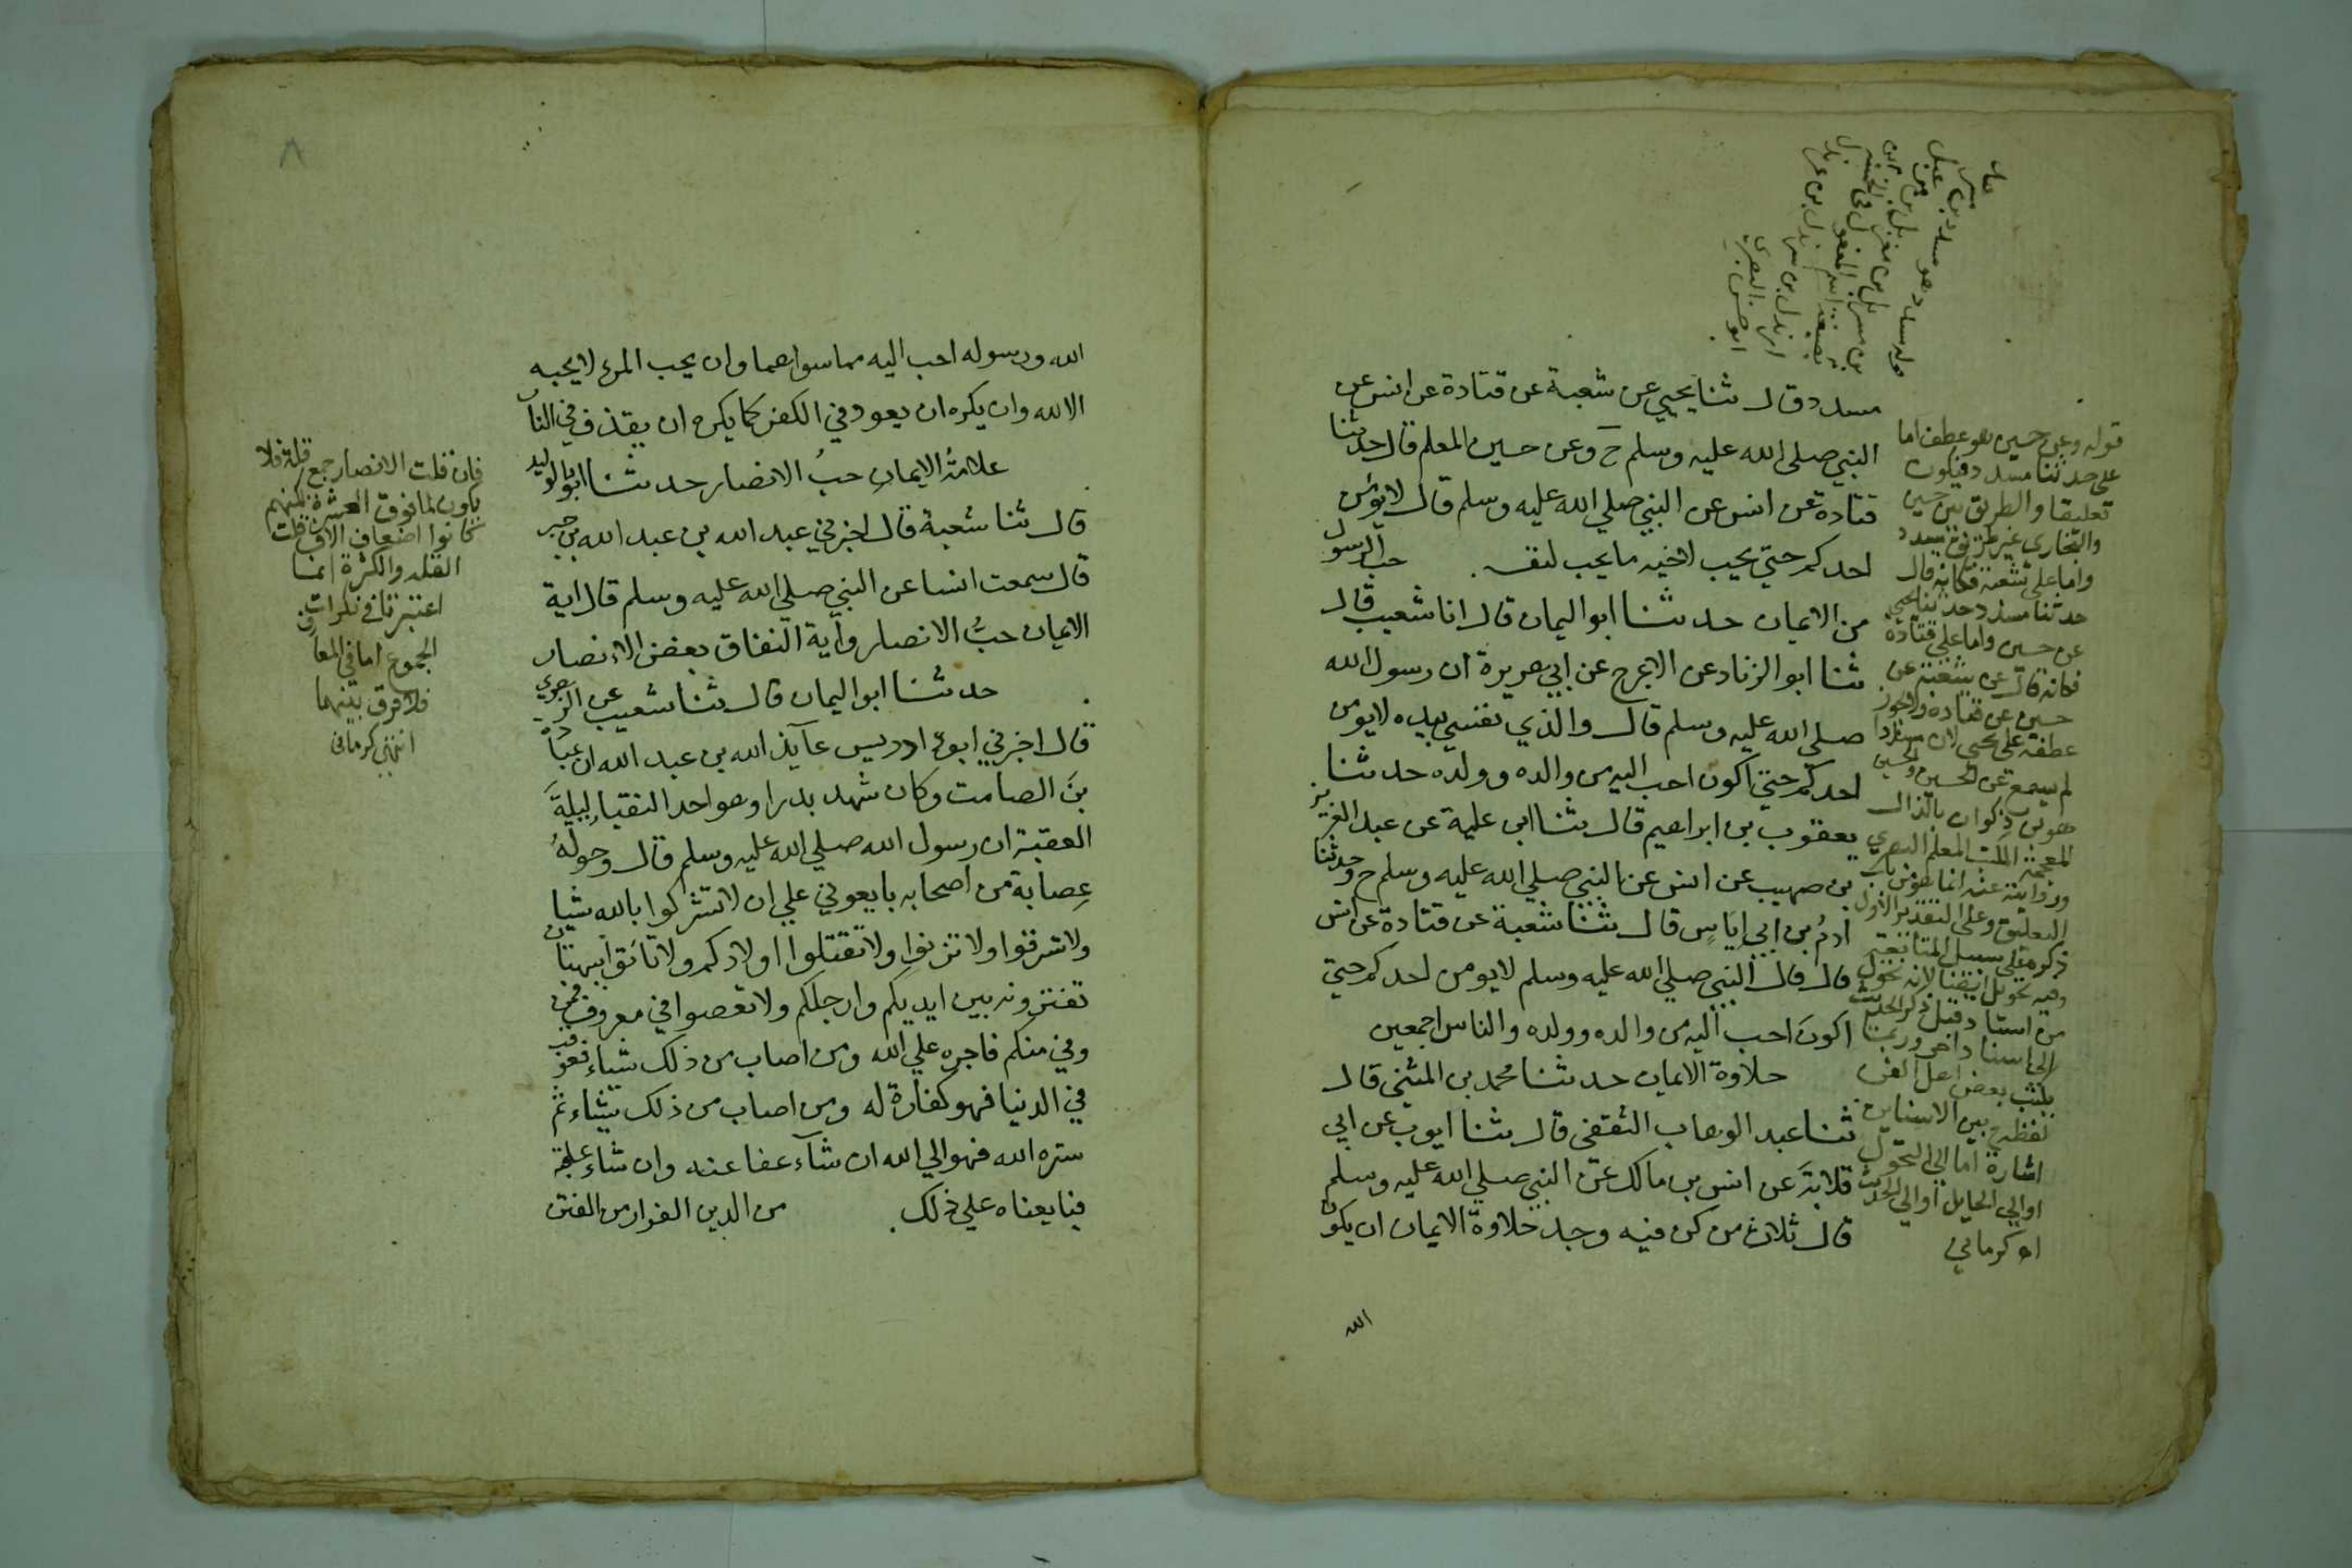 مسدد قال ثنا يحيي عن شعبة عن قتادة عن انس عن
النبي صلي الله عليه وسلم ح وعن حسين المعلم قال حدثنا
قتادة عن انس عن النبي صلي الله عليه وسلم قال لا يؤمن
احدكم حتي يحب لاخيه ما يحب لنفسه . حب الرسول
من الايمان حدثنا ابو اليمان قال انا شعيب قال
ثنا ابو الزناد عن الاعرج عن ابي هريرة ان رسول الله
صلي الله عليه وسلم قال والذي نفسي بيده لا يؤمن
احدكم حتي اكون احب اليه من والده وولده حدثنا
يعقوب بن ابراهيم قال ثنا ابن علية عن عبد العزيز
بن صهيب عن انس عن النبي صلي الله عليه وسلم ح وحدثنا
ادم بن ابي اياس قال ثنا شعبة عن قتادة عن انس
قال قال النبي صلي الله عليه وسلم لا يومن احدكم حتي
اكون احب اليه من والده وولده والناس اجمعين
حلاوة الايمان حدثنا محمد بن المثني قال
ثنا عبد الوهاب الثقفي قال ثنا ايوب عن ابي
قلابة عن انس بن مالك عن النبي صلي الله عليه وسلم
قال ثلاث من كن فيه وجد حلاوة الايمان ان يكون
الله
قوله وعن حسين هو عطف اما
علي حدثنا مسدد فيكون
تعليقا والطريق بين حسين
والبخاري غير طريق مسدد
واما علي شعبة فكانه قال
حدثنا مسدد حدثنا يحيي
عن حسين واما علي قتادة
فكانه قال عن شعبة عن
حسين عن قتادة ولا يجوز
عطفه علي يحيي لان مسددا
لم يسمع عن الحسين والحسين
هو بن ذكوان بالذال
المعجمة المكتب المعلم البصري
وروايته عنه انما هو من باب
التعليق وعلي التقدير الاول
ذكره علي سبيل المتابعة
من اسناد قبل ذكر الحديث
الي اسناد اخر وربما
يكتب بعض اهل الفن
لفظ ح بين الاسنادين
اشارة اما الي التحول
او الي الحايل او الي الحديث
اه كرماني
٨
الله ورسوله احب اليه مما سواهما وان يحب المرء لا يحبه
الا لله وان يكره ان يعود في الكفر كما يكره ان يقذف في النار
علامة الايمان حب الانصار حدثنا ابو الوليد
قال ثنا شعبة قال اخبرني عبد الله بن عبد الله بن جبر
قال سمعت انسا عن النبي صلي الله عليه وسلم قال اية
الايمان حب الانصار وآية النفاق بغض الانصار
حدثنا ابو اليمان قال ثنا شعيب عن الزهري
قال اخبرني ابو ادريس عآيذ الله بن عبد الله ان عبادة
بن الصامت وكان شهد بدرا وهو احد النقبا ليلة
العقبة ان رسول الله صلي الله عليه وسلم قال وحوله
عصابة من اصحابه بايعوني علي ان لا تشركوا بالله شيا
ولا تسرقوا ولا تزنوا ولا تقتلوا اولادكم ولا تأتوا ببهتان
تفترونه بين ايديكم وارجلكم ولا تعصوا في معروف فمن
وفي منكم فاجره علي الله ومن اصاب من ذلك شياء فعوقب
في الدنيا فهو كفارة له ومن اصاب من ذلك شياء ثم
ستره الله فهو الي الله ان شآء عفا عنه وان شاء عاقبه
فبايعناه علي ذلك . من الدين الفرار من الفتن
فان قلت الانصار جمع قلة فلا
يكون لما فوق العشرة لكنهم
كانوا اضعاف الالاف قلت
القلة والكثرة انما
اعتبرتا في نكرات
الجموع اما في المعارف
فلا فرق بينهما
انتهي كرماني